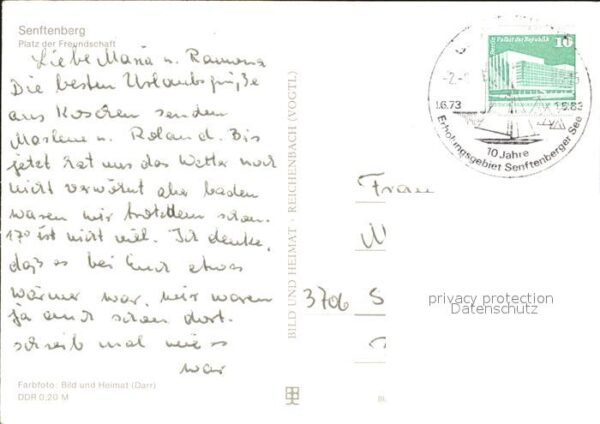 Senftenberg
Platz der Freundschaft
Liebe Maria u. Ramona
Die besten Urlaubsgrüße
aus Koschen senden
Marlene u. Roland. Bis
jetzt hat uns das Wetter noch
nicht verwöhnt aber baden
waren wir trotzdem schon.
17° ist nicht viel. Ich denke,
daß es bei Euch etwas
wärmer war, wir waren
ja auch schon dort.
schreib mal wie es
war
Farbfoto: Bild und Heimat (Darr)
DDR 0,20 M
BILD UND HEIMAT · REICHENBACH (VOGTL)
Berlin Palast der Republik
10
1.6.73
1.6.83
10 Jahre
Erholungsgebiet Senftenberger See
Frau
3706 S
privacy protection
Datenschutz